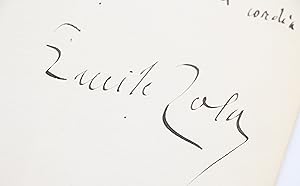 cordia
Emile Zola